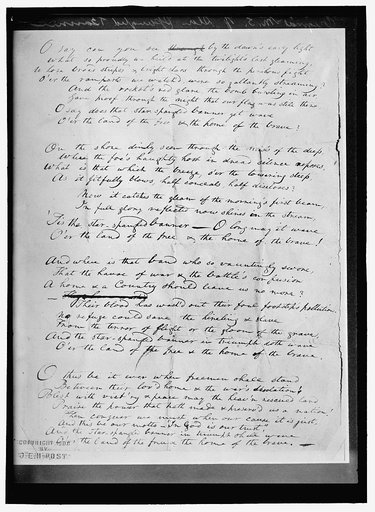 O say can you see ~~through~~ by the dawn's early light
What so proudly we hail'd at the twilight's last gleaming,
Whose broad stripes & bright stars through the perilous fight
O'er the ramparts we watch'd, were so gallantly streaming?
And the rocket's red glare, the bomb bursting in air,
Gave proof through the night that our flag was still there
O say does that star-spangled banner yet wave
O'er the land of the free & the home of the brave?
On the shore dimly seen through the mists of the deep,
Where the foe's haughty host in dread silence reposes,
What is that which the breeze, o'er the towering steep,
As it fitfully blows, half conceals, half discloses?
Now it catches the gleam of the morning's first beam,
In full glory reflected now shines in the stream,
'Tis the star-spangled banner — O long may it wave
O'er the land of the free & the home of the brave!
And where is that band who so vauntingly swore,
That the havoc of war & the battle's confusion
A home & a Country should leave us no more?
Their blood has wash'd out their foul footstep's pollution.
No refuge could save the hireling & slave
From the terror of flight or the gloom of the grave,
And the star-spangled banner in triumph doth wave
O'er the land of the free & the home of the brave.
O thus be it ever when freemen shall stand
Between their lov'd home & the war's desolation!
Blest with vict'ry & peace may the heav'n rescued land
Praise the power that hath made & preserv'd us a nation!
Then conquer we must, when our cause it is just,
And this be our motto - "In God is our trust,"
And the star-spangled banner in triumph shall wave
O'er the land of the free & the home of the brave. —
COPYRIGHT 1914
BY